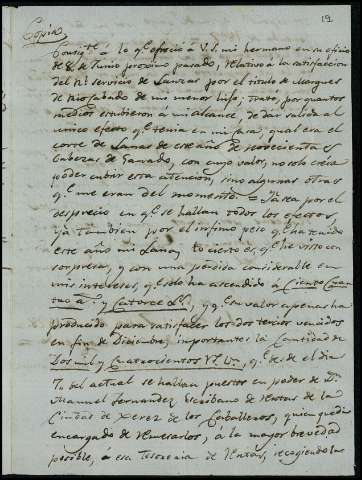 12
Copia
Consigte. á lo qe. ofreció á V.S. mi hermano en su oficio
de 8 de Junio proximo pasado, relativo á la satisfaccion
del Rl. servicio de Lanzas por el titulo de Marques
de Rio cabado de mi menor hijo, trató, por quantos
medios estubieron á mi alcance, de dar salida al
unico efecto qe. tenia en mi casa, qual era el
corte de Lanas de este año de novecientas
Cabezas de Ganado, con cuyo valor, no solo creia
poder cubrir esta atencion, sino algunas otras
qe. me eran del momento. = Ya sea por el
desprecio en qe. se hallan todos los efectos,
ya tambien por el infimo peso qe. ha tenido
este año mi Lana, lo cierto es, qe. he visto con
sorpresa, y con una pérdida considerable en
mis intereses, qe. solo ha ascendido á Ciento Cuaren
ta as. y Catorce Ls., y qe. su valor apenas ha
producido para satisfacer los dos tercios vencidos
en fin de Diciembre, importantes la Cantidad de
Dos mil y Cuatrocientos rs. vn., qe. desde el dia
7 del actual se hallan puestos en poder de Dn.
Manuel Fernandez Escribano de Rentas de la
Ciudad de Xerez de los Caballeros, quien quedó
encargado de remesarlos, á la mayor brevedad
posible, á esa Tesoreria de Rentas, recogiendo las